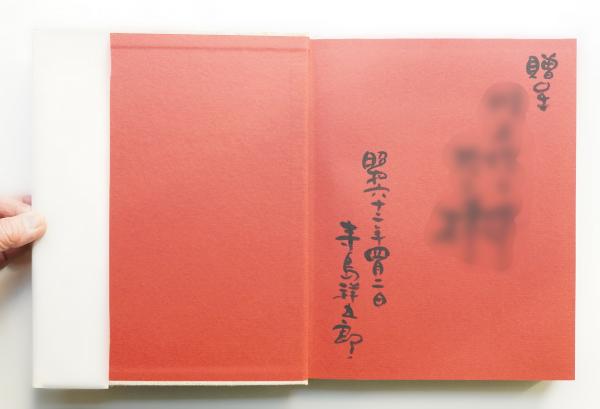 贈呈
昭和六十二年四月二日
寺島祥五郎